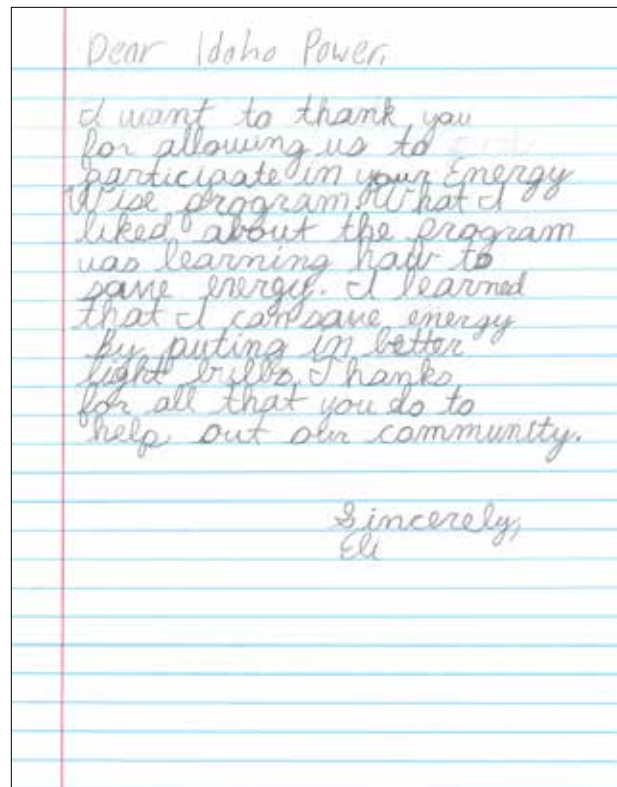 Dear Idaho Power,
I want to thank you
for allowing us to
participate in your Energy
Wise program. What I
liked about the program
was learning how to
save energy. I learned
that I can save energy
by puting in better
light bulbs. Thanks
for all that you do to
help out our community.
Sincerely,
Eli